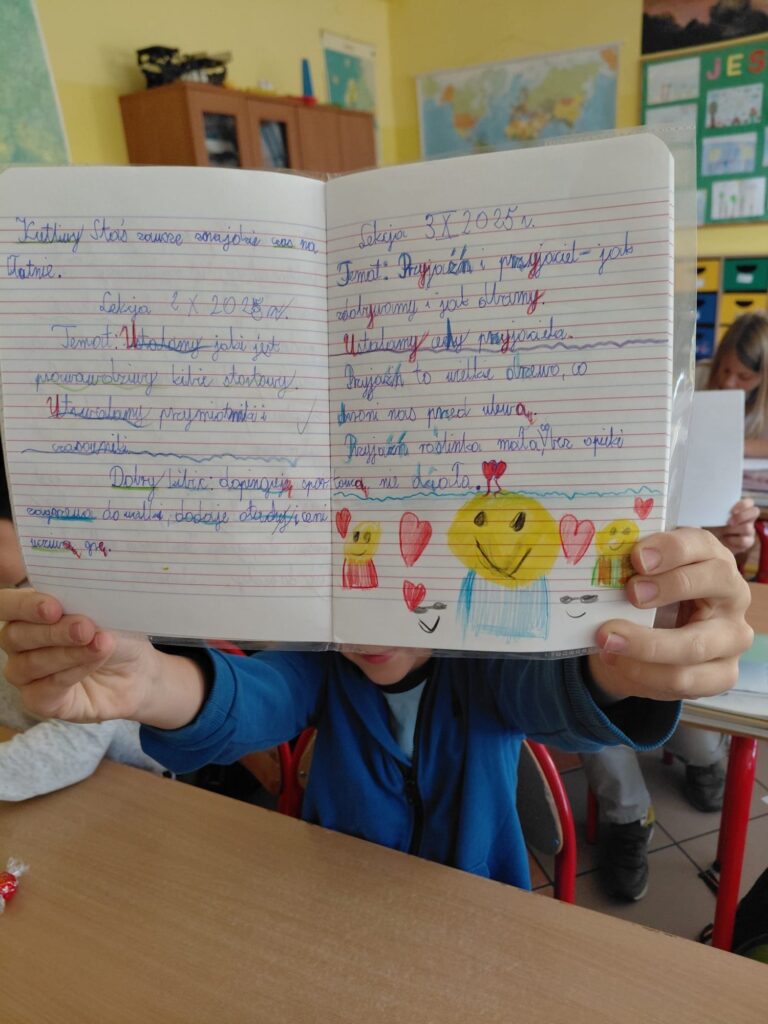 Kulturalny Staś zawsze znajdzie czas na
czytanie.
Lekcja 2 X 2025 r.
Temat: Ustalamy jaki jest
prowawdziwy kibic sportowy.
Utrwalamy przymiotniki i
czasowniki
Dobry kibic: dopingują, spor-
zagrzewa do walki, dodaje otuchy i ceni
uczciwą grę.
Lekcja 3 X 2025 r.
Temat: Przyjaźń i przyjaciel - jak
zdobywamy i jak dbamy.
Ustalamy cechy przyjaciela.
Przyjaźń to wielkie drzewo, co
broni nas przed ulewą.
Przyjaźń roślinka mała, bez opieki
nie działa.
JES